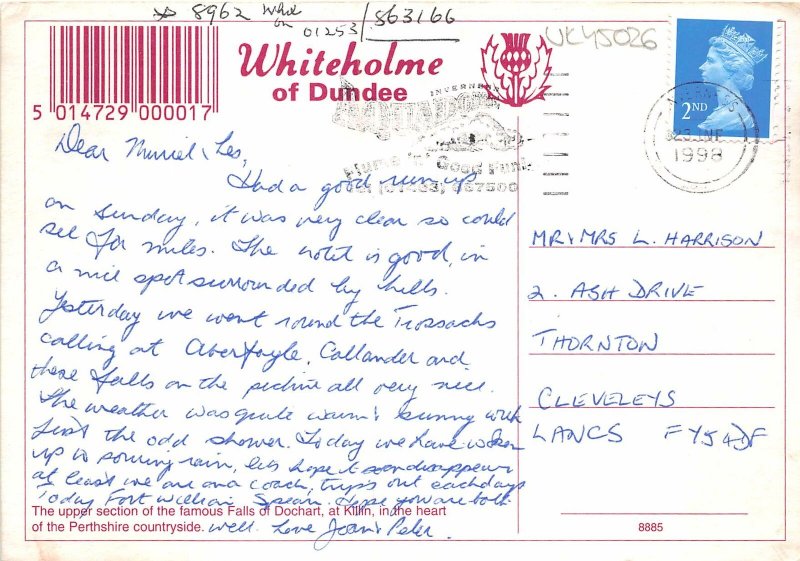 8962
01253 / 863166
UK45026
Whiteholme
of Dundee
5 014729 000017
INVERNESS
1998
2ND
Dear Muriel & Les,
Had a good run up
on Sunday, it was very clear so could
see for miles. The hotel is good, in
a nice spot surrounded by hills.
Yesterday we went round the Trossachs
calling at Aberfoyle, Callander and
these falls on the picture all very nice.
The weather was quite warm & sunny with
just the odd shower. Today we have woken
up to pouring rain, lets hope it soon disappears
at least we are on a coach, trips out each day
Today Fort William Spean. Hope you are both
well. Love Joan & Peter.
The upper section of the famous Falls of Dochart, at Killin, in the heart
of the Perthshire countryside.
MR & MRS L. HARRISON
2. ASH DRIVE
THORNTON
CLEVELEYS
LANCS FY5
8885